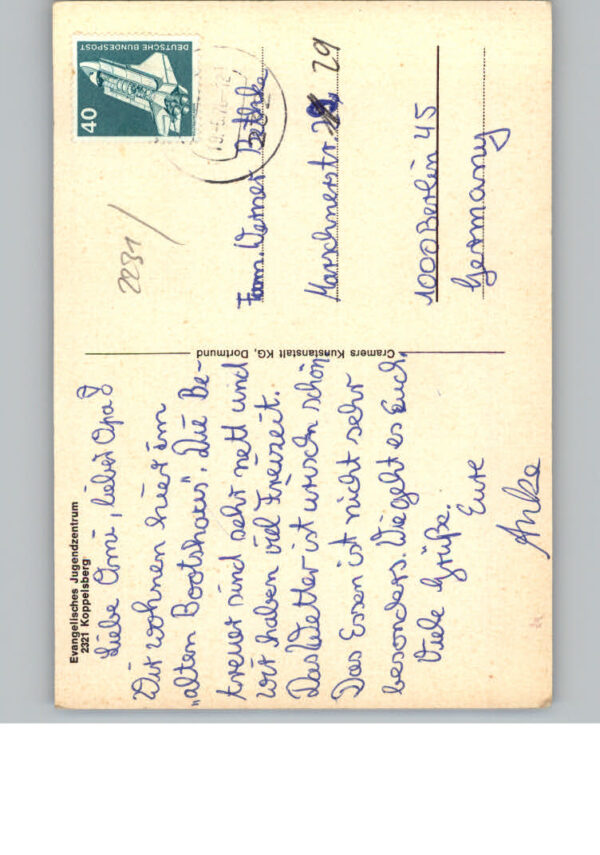 Evangelisches Jugendzentrum
2321 Koppelsberg
Liebe Omi, lieber Opa!
Wir wohnen hier im
"alten Bootshaus". Die Be-
treuer sind sehr nett und
wir haben viel Freizeit.
Das Wetter ist schön
Das Essen ist nicht sehr
besonders. Wie geht es Euch.
Viele Grüße.
Eure
Anke
Cramers Kunstanstalt KG, Dortmund
DEUTSCHE BUNDESPOST
40
2231
Fam. Werner Bethke
Marschnerstr. 29
1000 Berlin 45
Germany